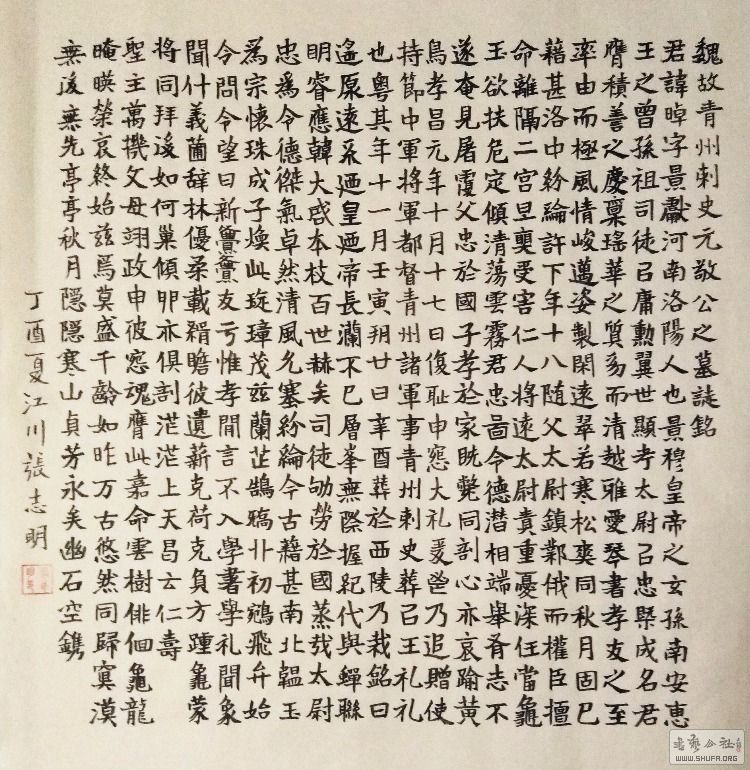 魏故青州刺史元敬公之墓誌銘
君諱晫字景獻河南洛陽人也景穆皇帝之玄孫南安惠
王之曾孫祖司徒㠯庸勲翼世顯考太尉㠯忠槩成名君
膺積善之慶稟瑤華之質㓜而清越雅愛琴書孝友之至
率由而極風情峻邁姿製閑遠翠若寒松奭同秋月固已
藉甚洛中紛綸許下年十八随父太尉鎮鄴俄而權臣擅
命離隔二宫旦奭受害仁人將遠太尉責重憂深任當龜
玉欲扶危定傾清蕩雲霧君忠啚令德潜相端舉胥志不
遂奄見屠覆父忠於國子孝於家既斃同剖心亦哀踰黄
鳥孝昌元年十月十七日復耻申寃大礼爰啓乃追贈使
持節中軍將軍都督青州諸軍事青州刺史葬㠯王礼礼
也粤其年十一月壬寅朔廿日辛酉葬於西陵乃裁銘曰
遥原遠系迺皇迺帝長瀾不已層峯無際握紀代與蟬聯
明睿應韓大啓本枝百世赫矣司徒劬勞於國烝哉太尉
忠爲令德傑氣卓然清風允塞紛綸今古藉甚南北韞玉
爲宗懷珠成子煥此琁璋茂兹蘭芷鵠矯廾初鵷飛弁始
今問令望日新亹亹友亏惟孝閒言不入學著學礼聞象
聞什義菌辭林優柔載緝瞻彼遺薪克荷克負方踵龜蒙
將同拜後如何巢傾卵亦俱剖茫茫上天曷云仁壽
聖主萬機文母翊政申彼寃魂膺此嘉命雲樹俳佪龜龍
晻暎榮哀終始兹焉莫盛千齡如昨万古悠然同歸寞漠
無後無先亭亭秋月隱隱寒山貞芳永矣幽石空鐫
丁酉夏江川張志明
書藝公社
WWW.SHUFA.ORG